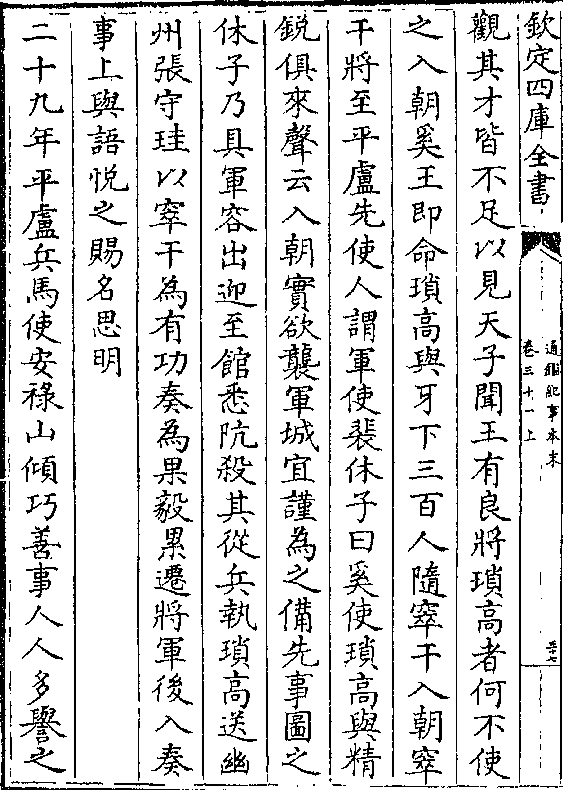 欽定四庫全書
通鑑紀事本末
卷三十一上
觀其才皆不足以見天子聞王有良將瑣高者何不使
之入朝奚王即命瑣高與牙下三百人隨窣干入朝窣
干將至平盧先使人謂軍使裴休子曰奚使瑣高與精
銳俱來聲云入朝實欲襲軍城宜謹為之備先事圖之
休子乃具軍容出迎至館悉阬殺其從兵執瑣高送幽
州張守珪以窣干為有功奏為果毅累遷將軍後入奏
事上與語悅之賜名思明
二十九年平盧兵馬使安祿山傾巧善事人人多譽之